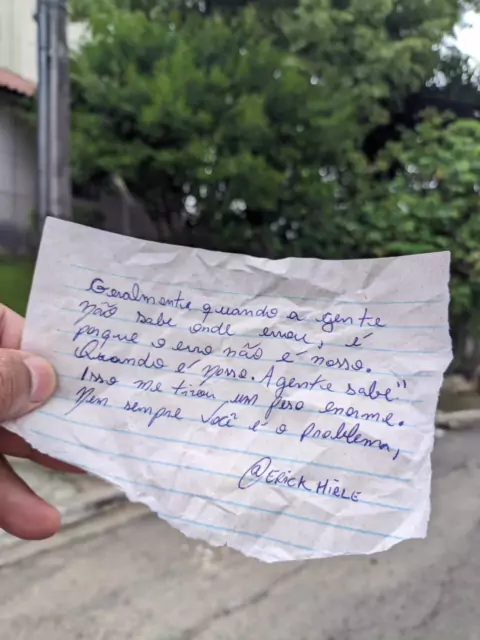 Geralmente quando a gente
não sabe onde errou, é
porque o erro não é nosso.
Quando é nosso. A gente sabe"
Isso me tirou um peso enorme.
Nem sempre você é o problema,
@ERICK HIELE